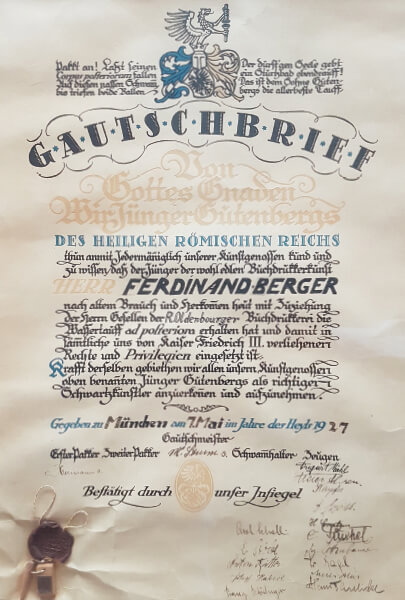 Packt an! Laßt seinen
Corpus posteriorum fallen
Auf diesen nassen Schwamm
bis triefen beide Ballen.
Der dürst'gen Seele gebt
ein Sturzbad obendrauff!
Das ist dem Sohne Guten-
bergs die allerbeste Tauff.
G·A·U·T·S·C·H·B·R·I·E·F
Von
Gottes Gnaden
Wir Jünger Gutenbergs
DES HEILIGEN RÖMISCHEN REICHS
thun anmit Jedermänniglich unserer Kunstgenossen kund und
zu wissen, daß der Jünger der wohledlen Buchdruckerkunst
HERR FERDINAND·BERGER
nach altem Brauch und Herkomen heut mit Zuziehung
der Herrn Gesellen der R.Oldenbourger Buchdruckerei die
Wassertauff ad posteriora erhalten hat und damit in
sämtliche uns von Kaiser Friedrich III. verliehenen
Rechte und Privilegien eingesetzt ist.
Krafft derselben gebiethen wir allen unsern Kunstgenossen
oben benanten Jünger Gutenbergs als richtigen
Schwarzkünstler anzuerkenen und aufzunehmen.
Gegeben zu München am 7. Mai im Jahre des Heyls 1927
Gautschmeister
Erster Packer Zweiter Packer Schwamhalter Zeugen
Bestätigt durch unser Insiegel